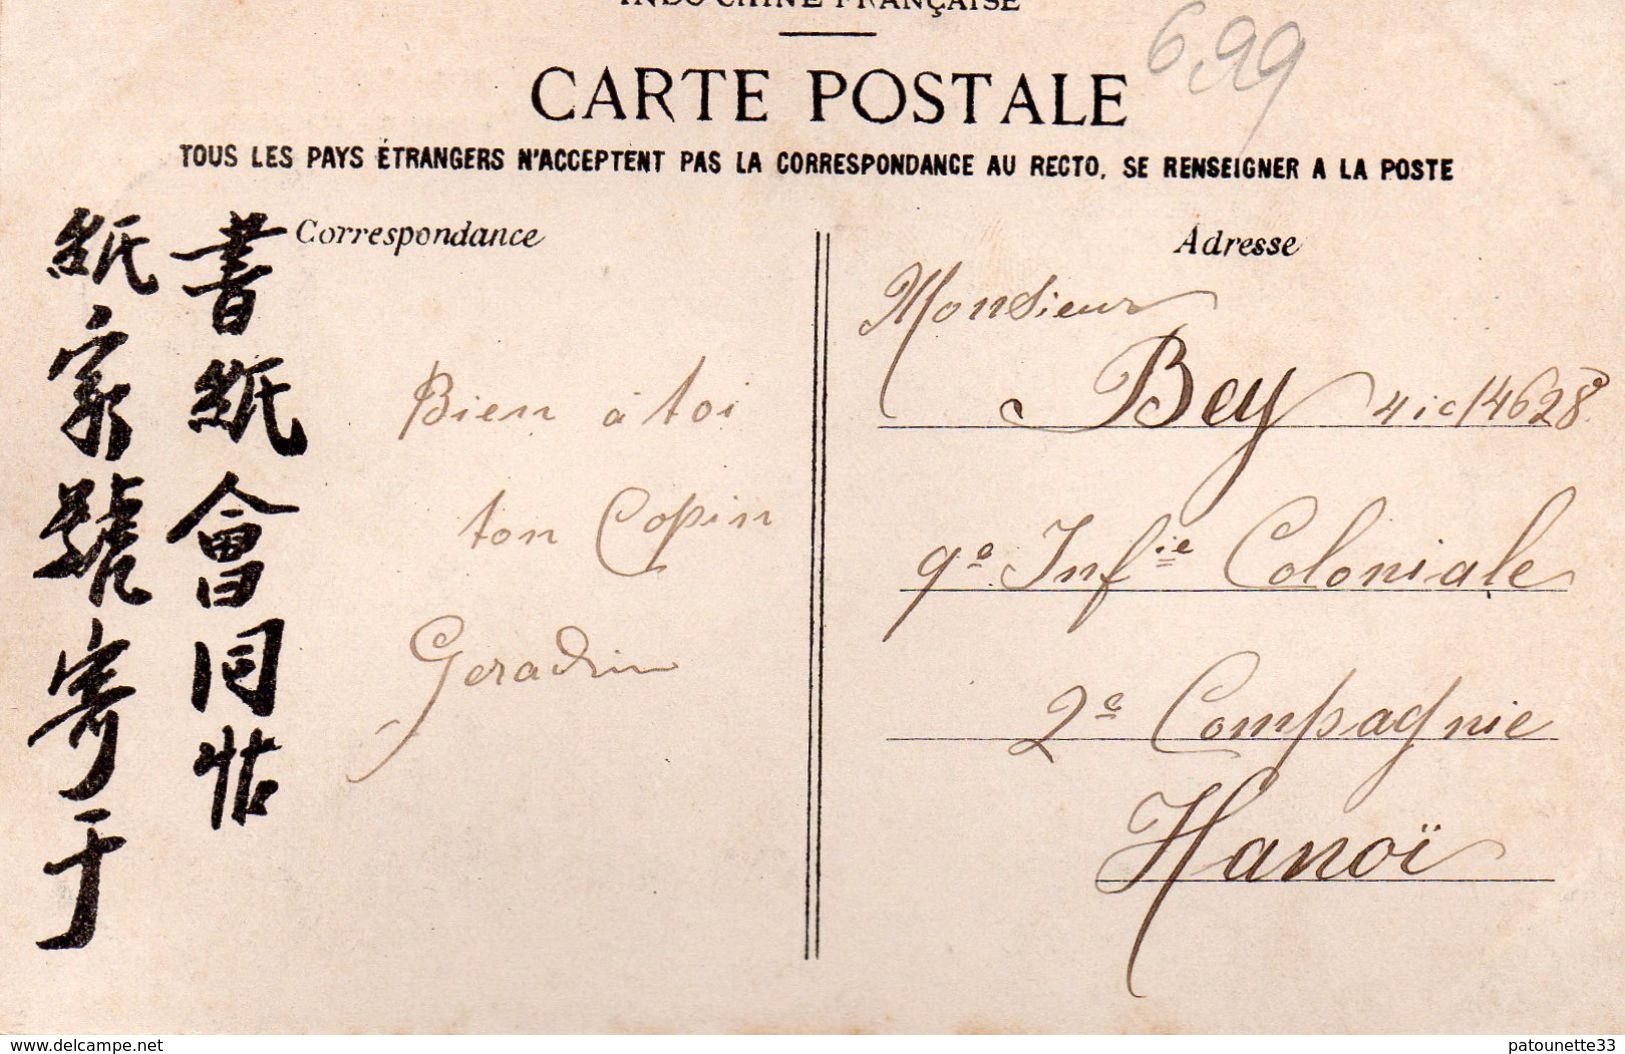 INDO-CHINE FRANÇAISE
CARTE POSTALE
6,99
TOUS LES PAYS ÉTRANGERS N'ACCEPTENT PAS LA CORRESPONDANCE AU RECTO, SE RENSEIGNER A LA POSTE
Correspondance
書紙會同帖
紙家號寄于
Bien à toi
ton Copin
Geradin
Adresse
Monsieur
Bey 4ic/4628
9e Infie Coloniale
2e Compagnie
Hanoï
www.delcampe.net
patounette33